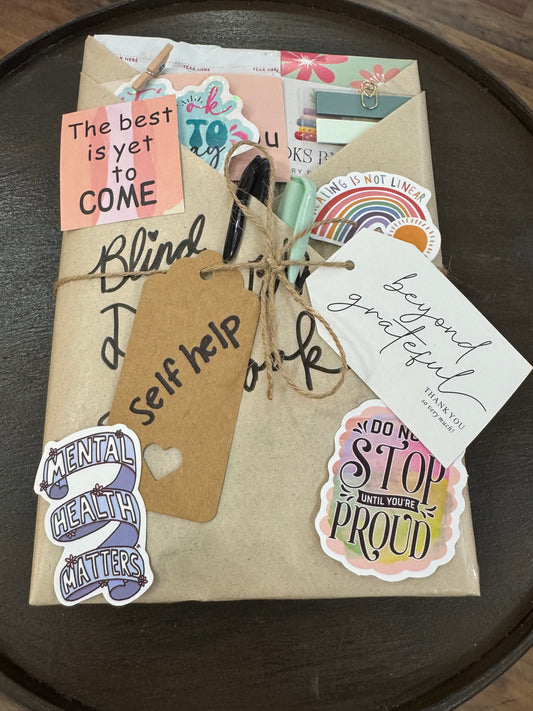 TEAR HERE
TEAR HERE
TEAR HERE
The best
is yet
to
COME
ok
TO
u
HEALING IS NOT LINEAR
Blind
Self help
beyond
grateful
THANK YOU
so very much!
MENTAL
HEALTH
MATTERS
DO NO
STOP
UNTIL YOU'RE
PROUD